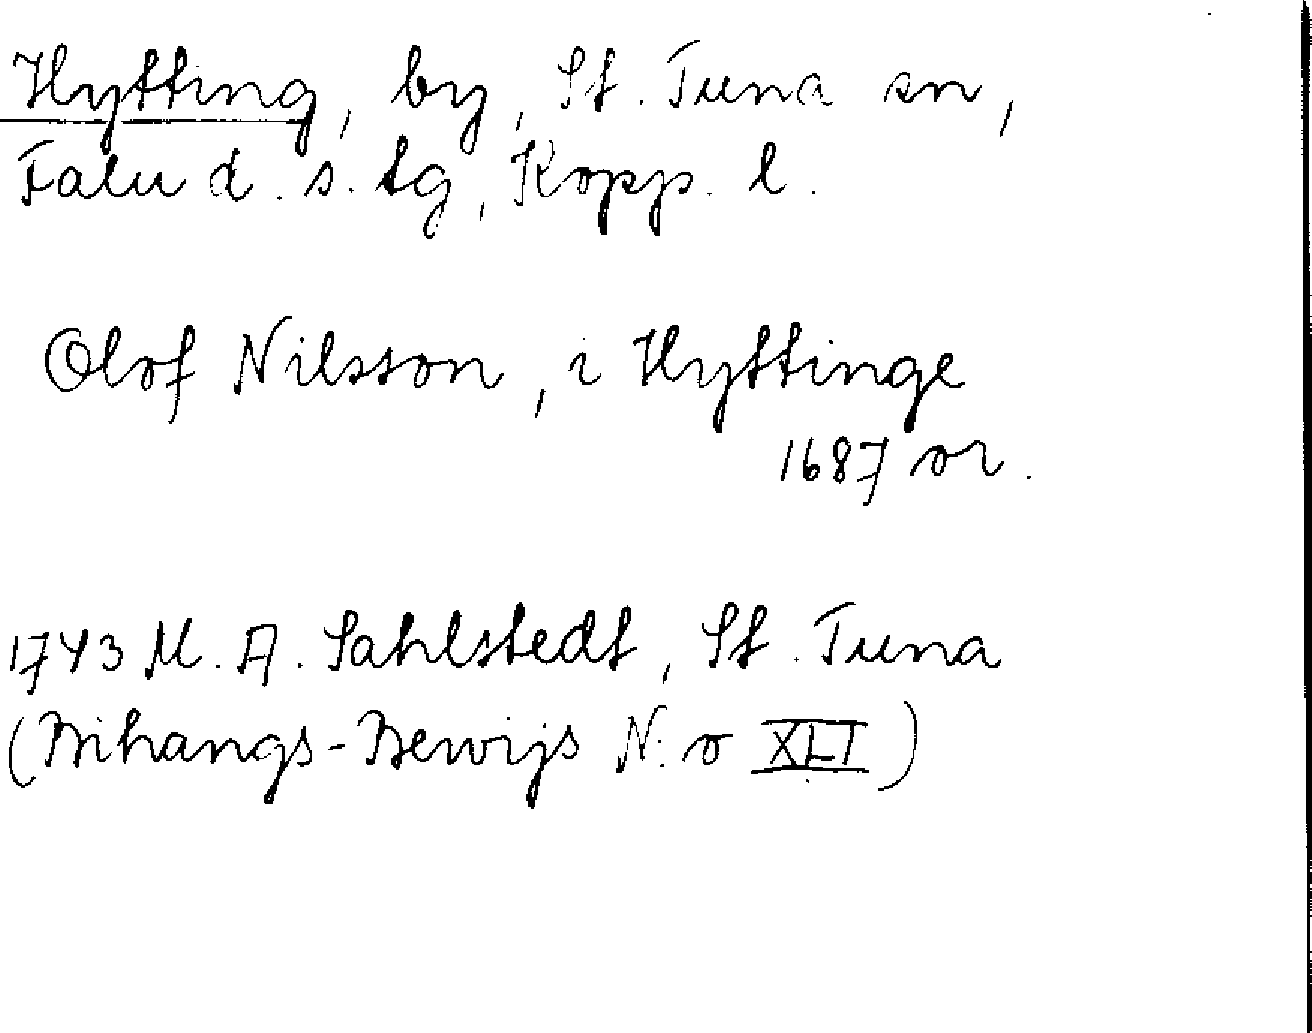 Hytting, by, St. Tuna sn,
Falu d. s. tg, Kopp. l.
Olof Nilsson, i Hyttinge
1687 or.
1743 M. A. Sahlstedt, St. Tuna
(Bihangs-Bewijs N:o XLI)